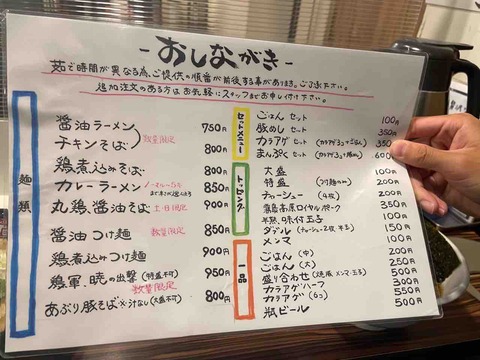 - おしながき -
茹で時間が異なる為、ご提供の順番が前後する事があります。ご了承下さい。
追加注文のある方は お気軽にスタッフまでお申し付け下さい。
麺類
醤油ラーメン 750円
チキンそば 数量限定 800円
鶏煮込みそば 800円
カレーラーメン 850円
丸鶏醤油そば 土日限定 900円
醤油つけ麺 数量限定 850円
鶏煮込つけ麺 900円
鶏軍、暁の出撃 (特盛不可) 数量限定 950円
あぶり豚そば ※汁なし(大盛不可) 800円
セットメニュー
ごはん セット 100円
豚めし セット 350円
カラアゲ セット (カラアゲ3コ+ごはん) 350
まんぷく セット (カラアゲ3コ+豚めし) 600
トッピング
大盛 100円
特盛 200円
チャーシュー (4枚) 200円
霧島赤原ロイヤルポーク 350円
半熟味付玉子 100円
ダブル (チャーシュー2枚、半玉) 150円
メンマ 100円
一品
ごはん (中) 200円
ごはん (大) 250円
盛り合わせ 500円
カラアゲハーフ 300円
カラアゲ (6コ) 550円
瓶ビール 500円